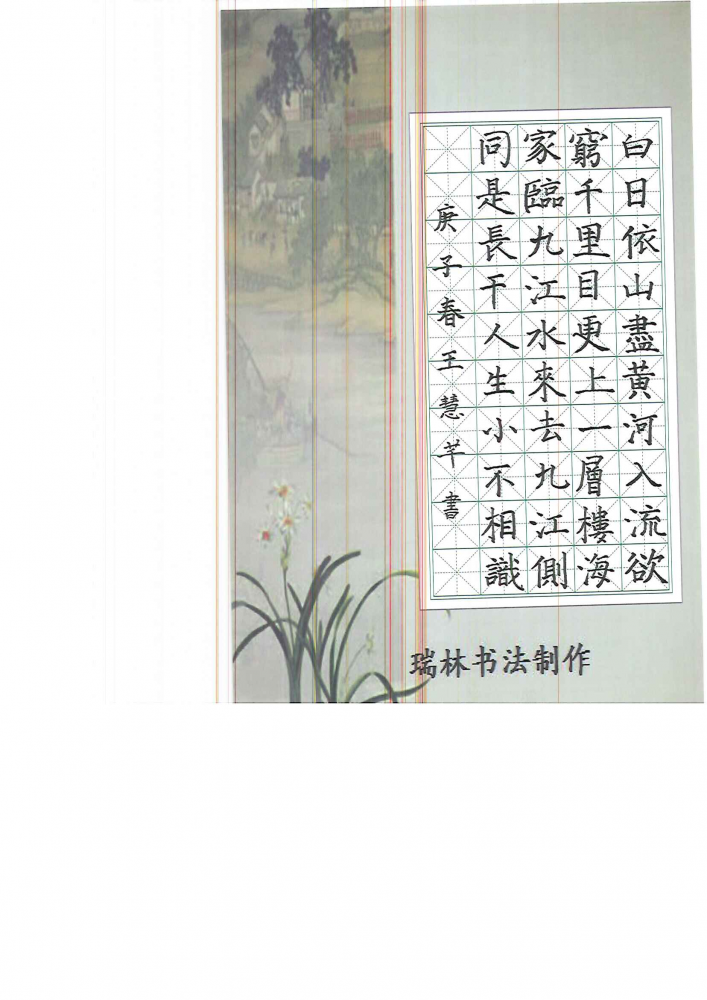 白日依山盡黄河入流欲
窮千里目更上一層樓海
家臨九江水來去九江側
同是長干人生小不相識
庚子春王慧芊書
瑞林书法制作